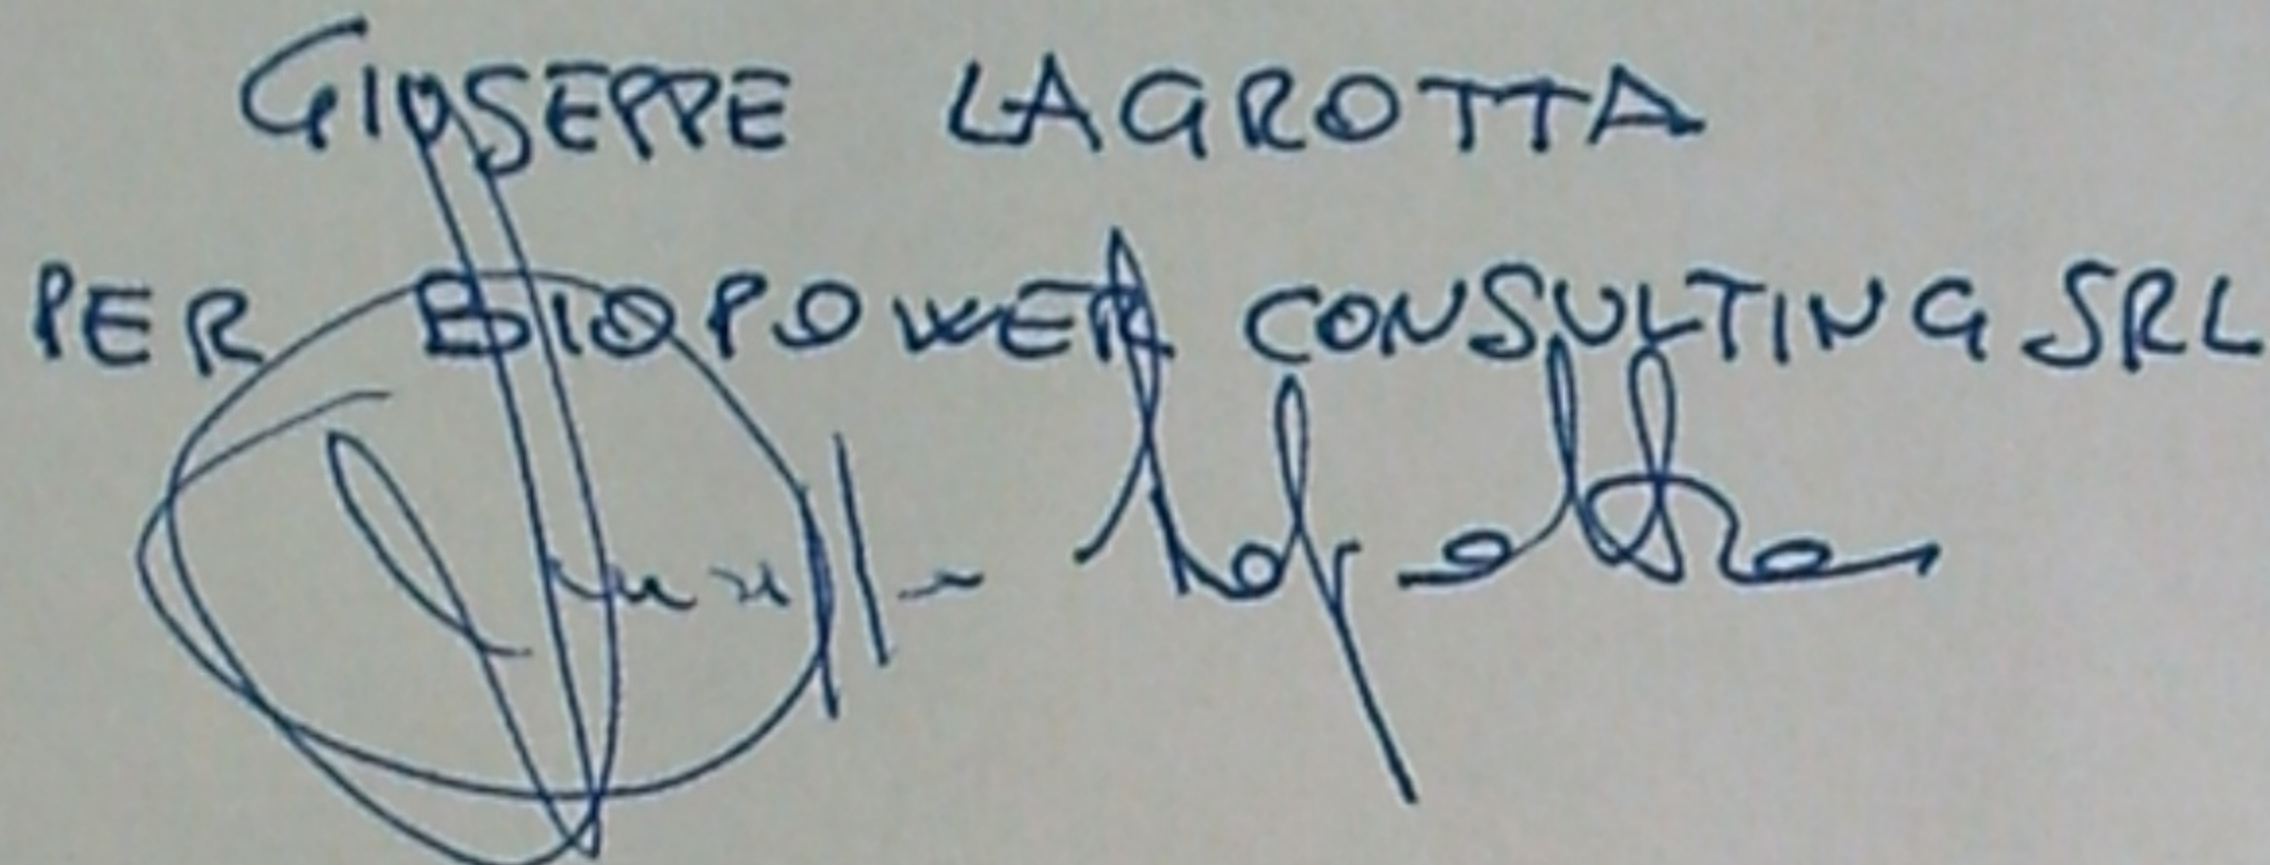 GIUSEPPE LAGROTTA
PER BIOPOWER CONSULTING SRL